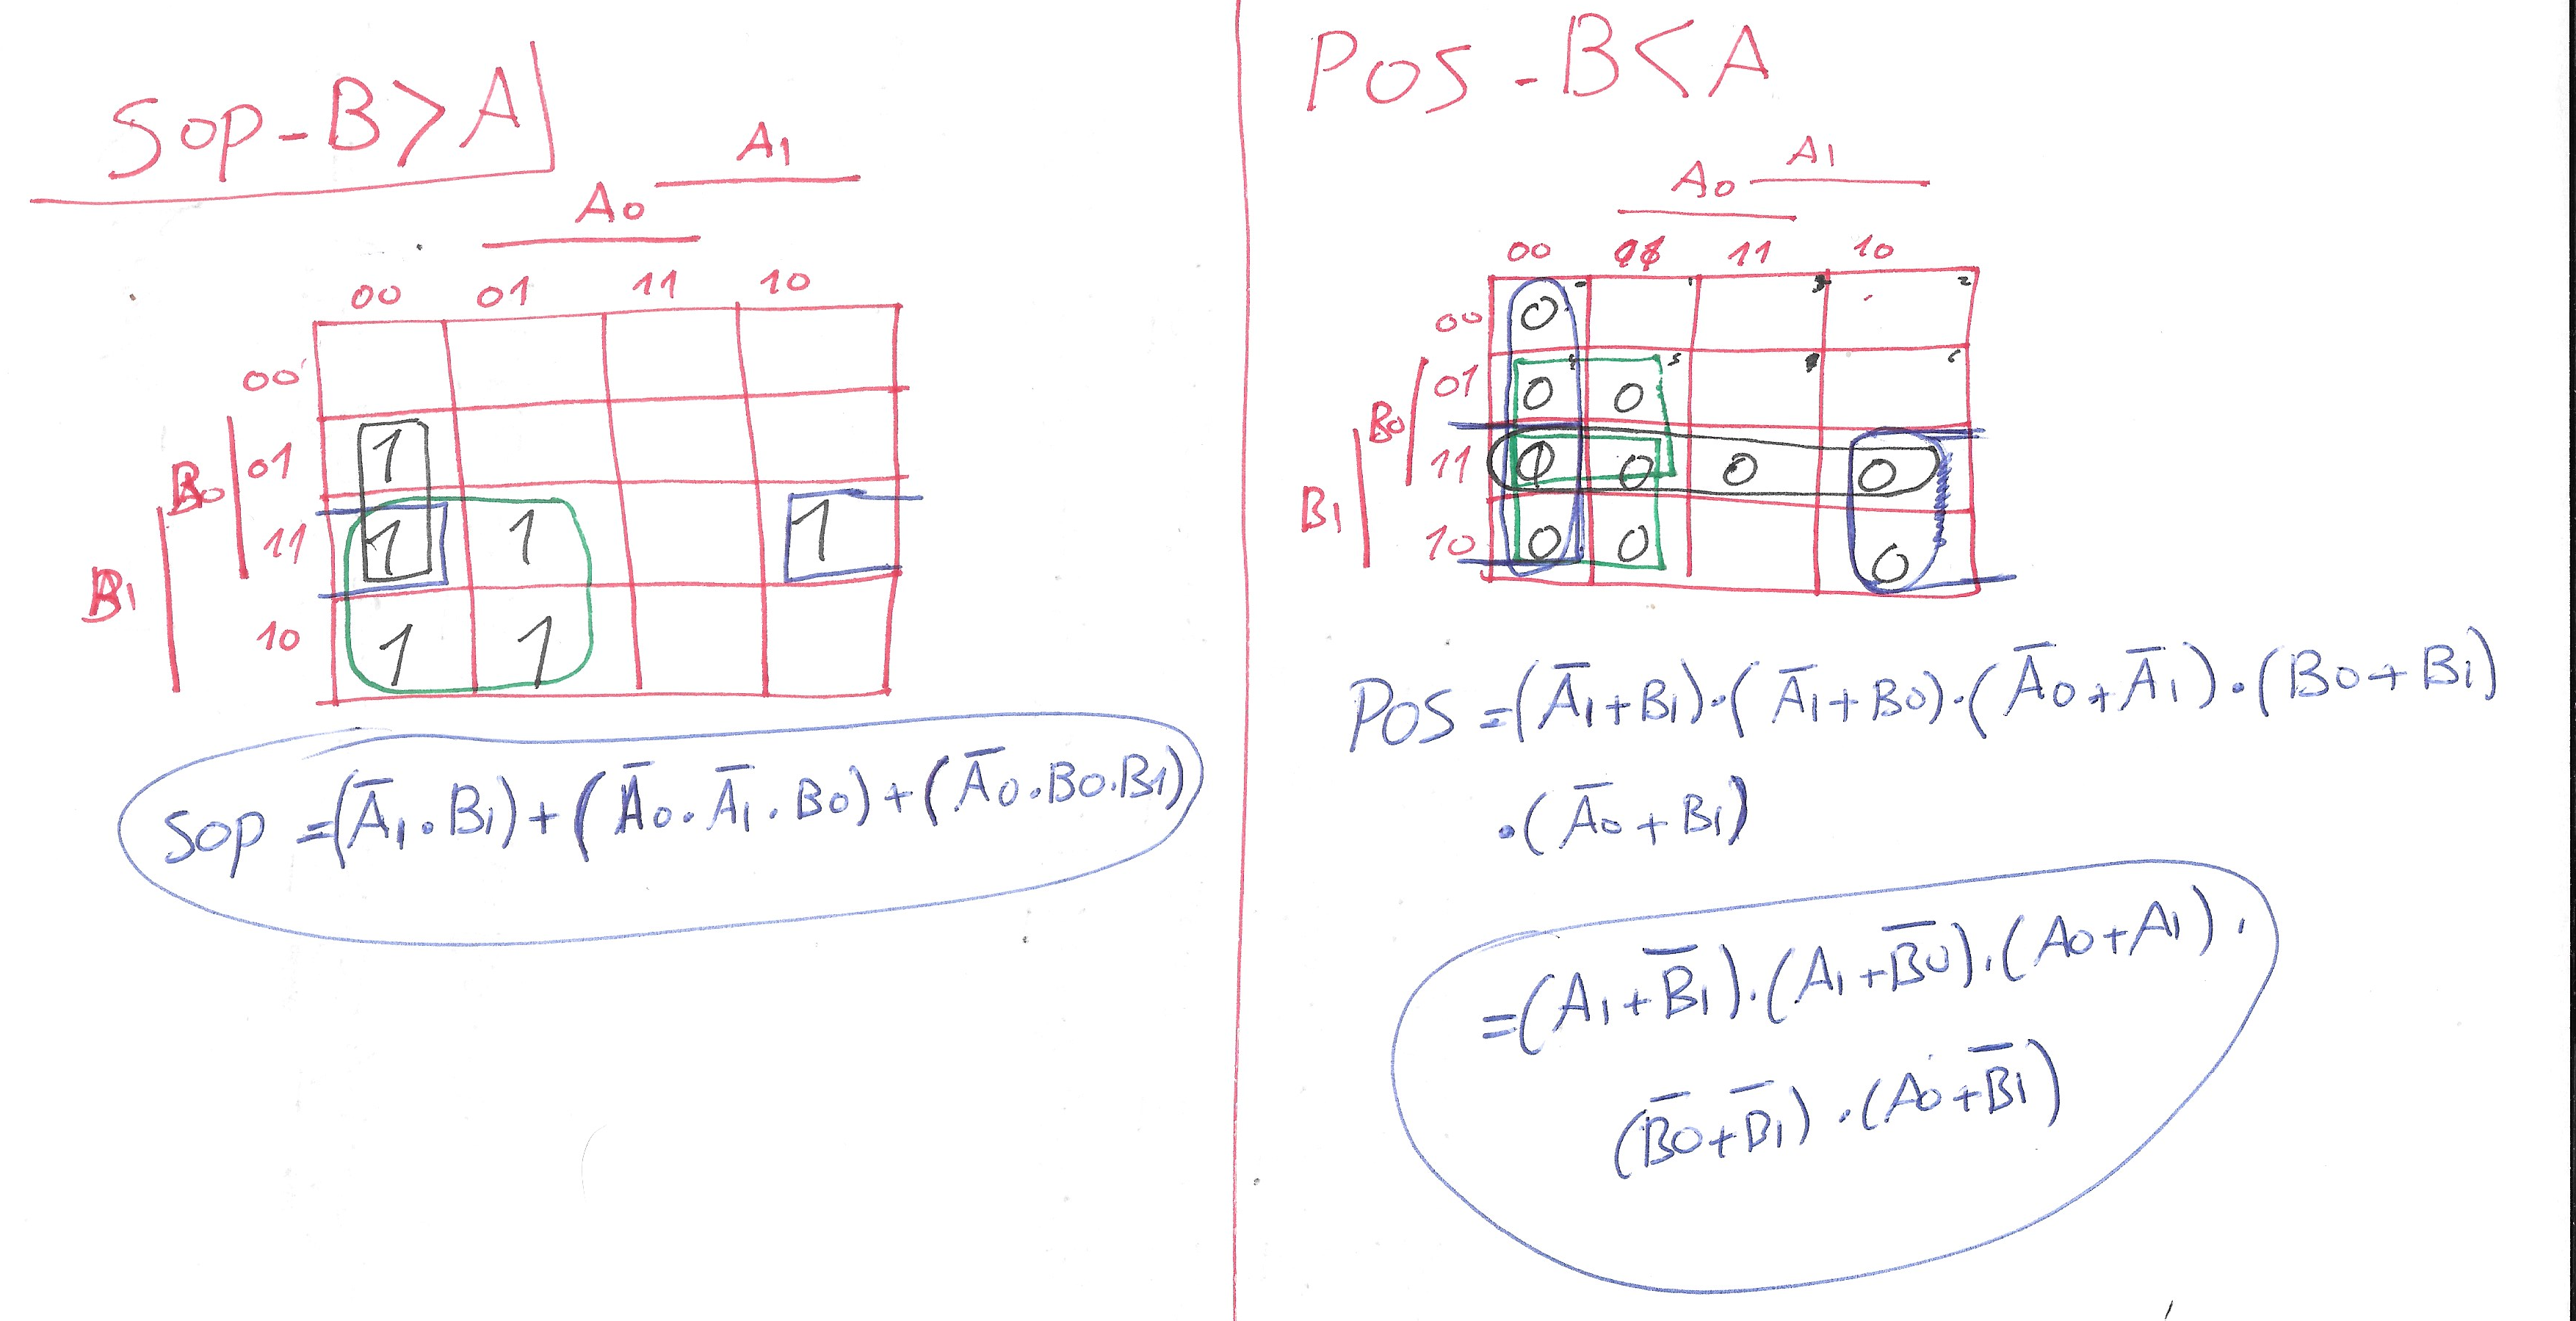 Sop - B > A
A1
A0
00 01 11 10
00
01 1
B0
11 1 1 1
B1
10 1 1
Sop = (A̅1 . B1) + (A̅0 . A̅1 . B0) + (A̅0 . B0 . B1)
POS - B < A
A1
A0
00 11 10
00 0 1 2
01 0 0 5
B0
11 0 0 0
B1
10 0 0 0
POS = (A̅1 + B1) . (A̅1 + B0) . (A̅0 + A̅1) . (B0 + B1)
. (A̅0 + B1)
= (A1 + B̅1) . (A1 + B̅0) . (A0 + A1) .
(B̅0 + B̅1) . (A0 + B̅1)